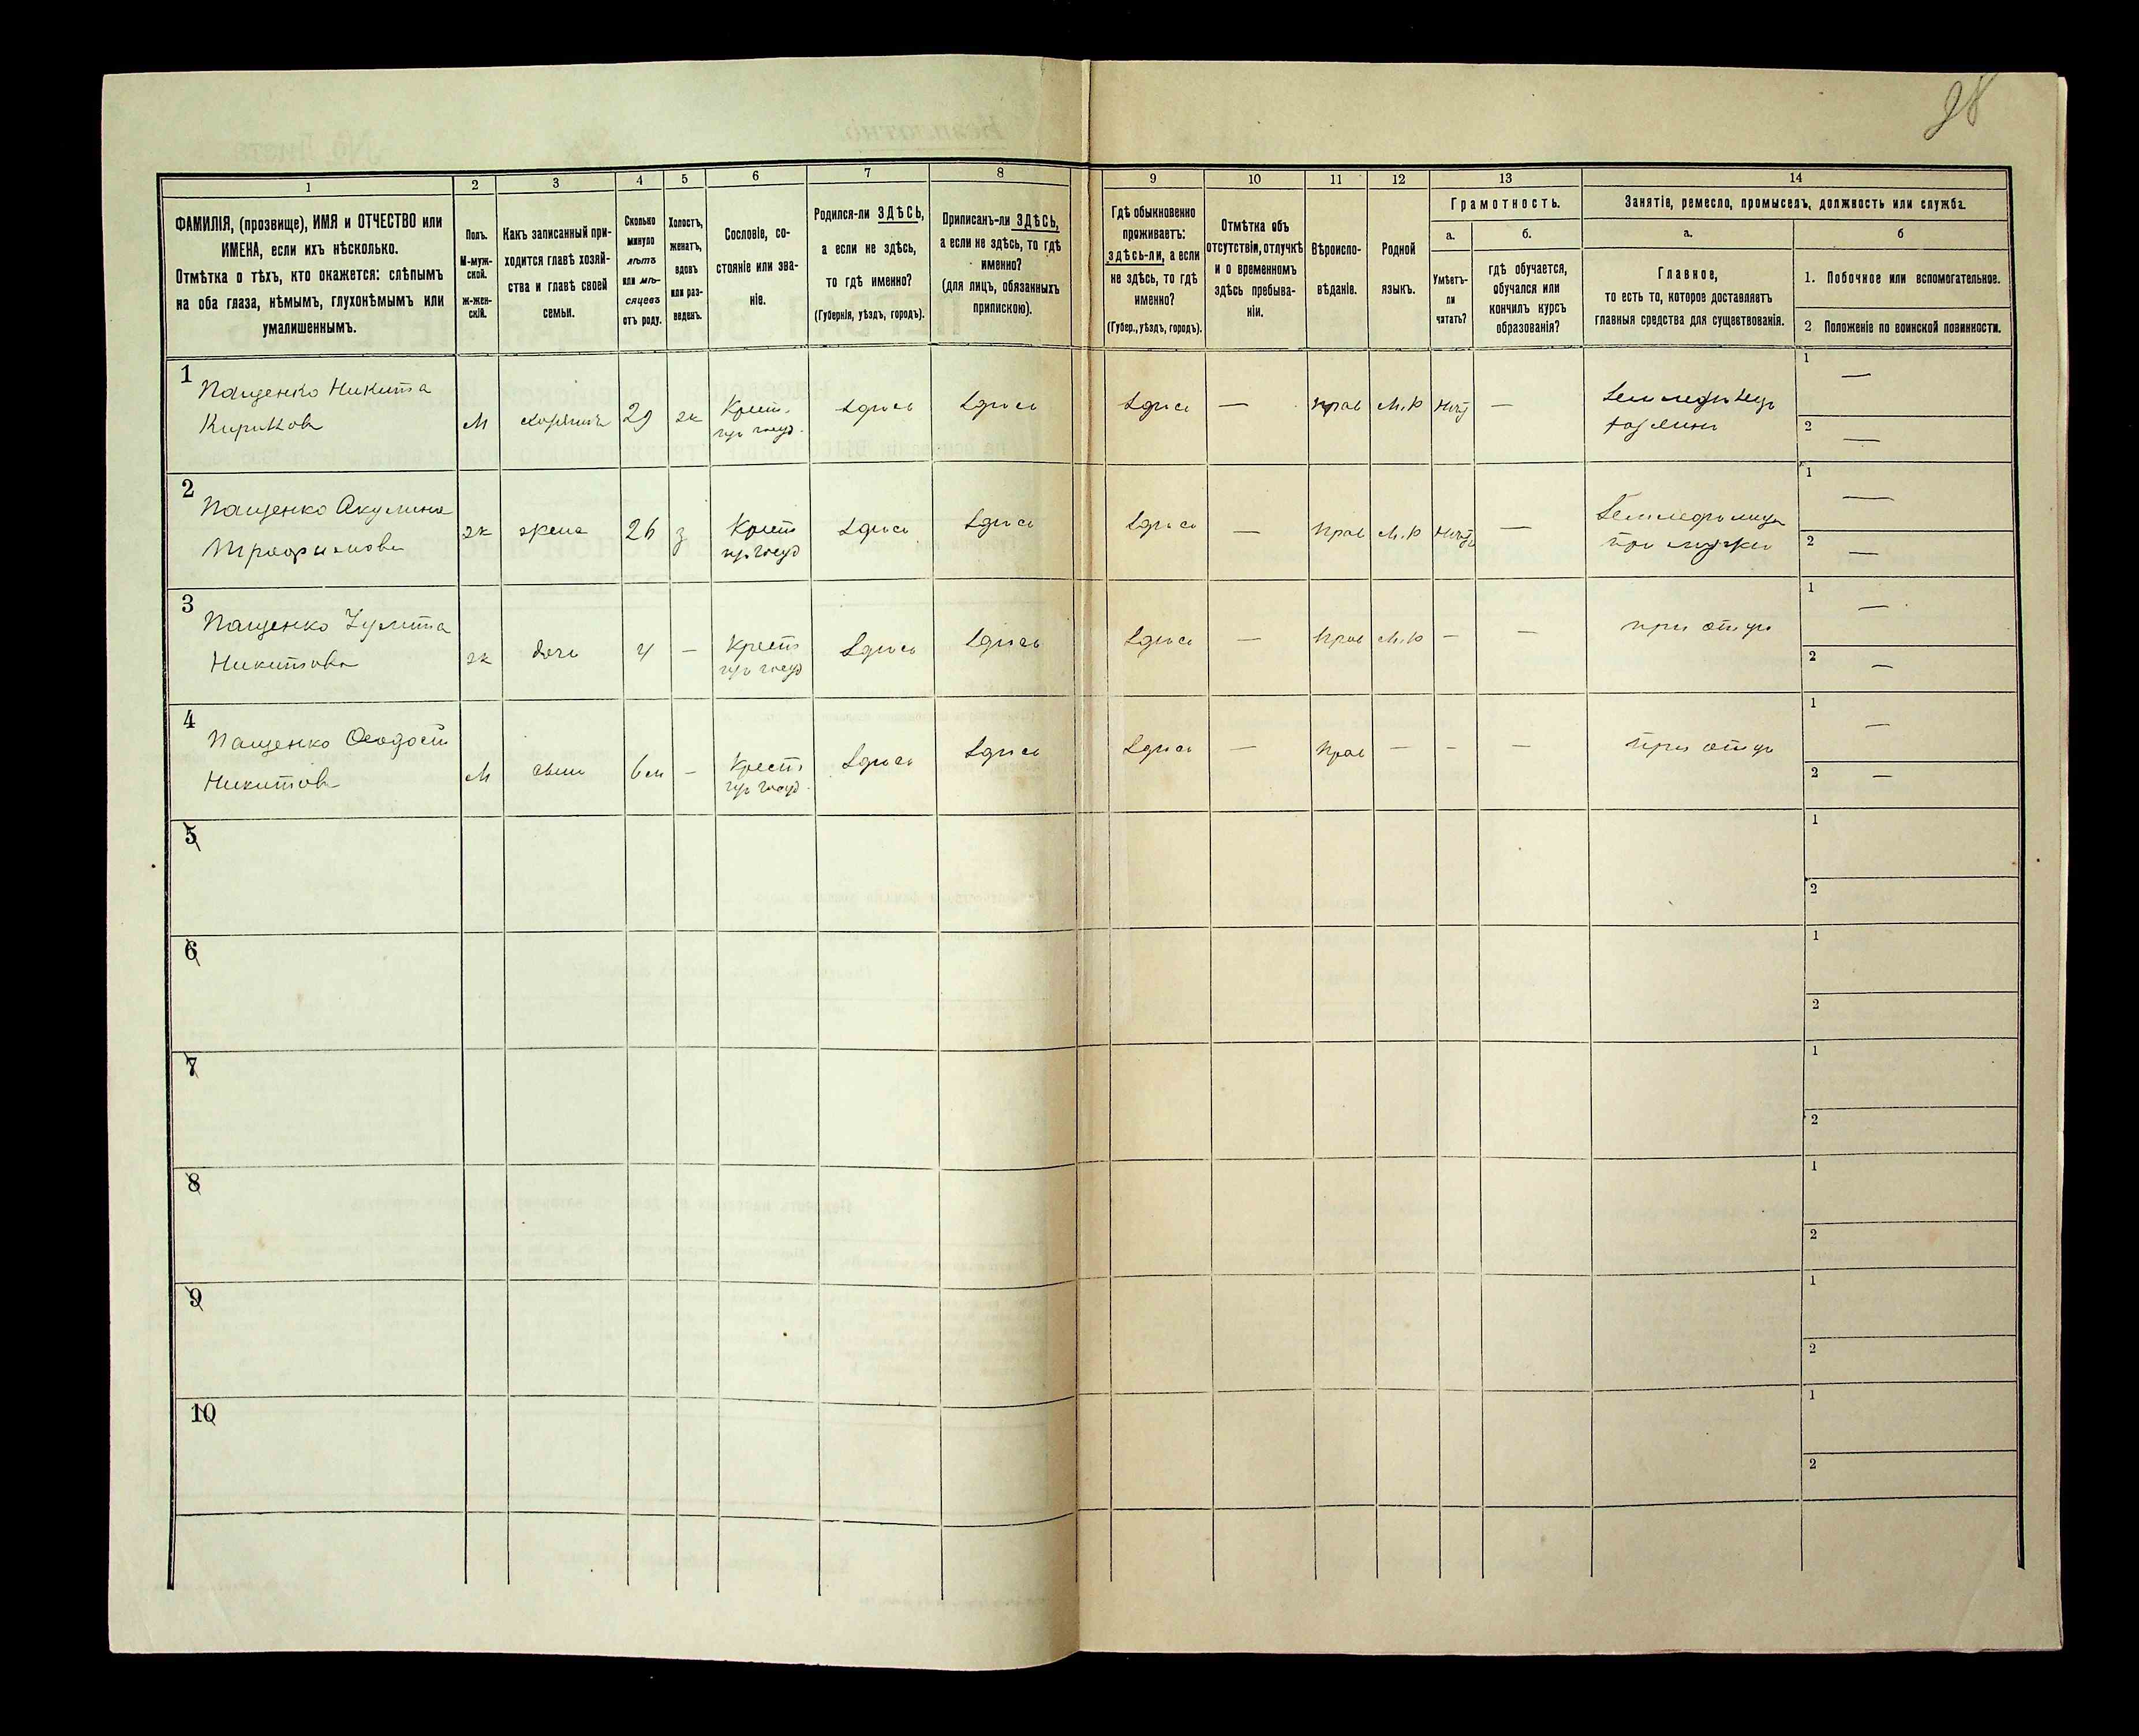 28
1
2
3
4
5
6
7
8
9
10
11
12
13
14
ФАМИЛІЯ, (прозвище), ИМЯ и ОТЧЕСТВО или
ИМЕНА, если ихъ нѣсколько.
Отмѣтка о тѣхъ, кто окажется: слѣпымъ
на оба глаза, нѣмымъ, глухонѣмымъ или
умалишеннымъ.
Полъ.
М-муж-
ской.
ж-жен-
скій.
Какъ записанный при-
ходится главѣ хозяй-
ства и главѣ своей
семьи.
Сколько
минуло
лѣтъ
или мѣ-
сяцевъ
отъ роду.
Холостъ,
женатъ,
вдовъ
или раз-
веденъ.
Сословіе, со-
стояніе или зва-
ніе.
Родился-ли ЗДѢСЬ,
а если не здѣсь,
то гдѣ именно?
(Губернія, уѣздъ, городъ).
Приписанъ-ли ЗДѢСЬ,
а если не здѣсь, то гдѣ
именно?
(для лицъ, обязанныхъ
припискою).
Гдѣ обыкновенно
проживаетъ:
здѣсь-ли, а если
не здѣсь, то гдѣ
именно?
(Губер., уѣздъ, городъ).
Отмѣтка объ
отсутствіи, отлучкѣ
и о временномъ
здѣсь пребыва-
ніи.
Вѣроиспо-
вѣданіе.
Родной
языкъ.
Грамотность.
а.
Умѣетъ-
ли
читать?
б.
гдѣ обучается,
обучался или
кончилъ курсъ
образованія?
Занятіе, ремесло, промыселъ, должность или служба.
а.
Главное,
то есть то, которое доставляетъ
главныя средства для существованія.
б
1. Побочное или вспомогательное.
2 Положеніе по воинской повинности.
1
Пащенко Никита
Кириковъ
М
хозяинъ
29
ж
Крест.
изъ госуд.
Здѣсь
Здѣсь
Здѣсь
—
прав
М.р
нѣтъ
—
Земледѣлецъ
хозяинъ
1 —
2 —
2
Пащенко Акулина
Трофимова
ж
жена
26
з
Крест
изъ госуд
Здѣсь
Здѣсь
Здѣсь
—
прав
М.р
нѣтъ
—
при мужѣ
1 —
2 —
3
Пащенко Улита
Никитова
ж
дочь
4
—
Крест
изъ госуд
Здѣсь
Здѣсь
Здѣсь
—
прав
М.р
—
—
при отцѣ
1 —
2 —
4
Пащенко Ѳеодосій
Никитовъ
М
сынъ
6 м
—
Крест
изъ госуд.
Здѣсь
Здѣсь
Здѣсь
—
прав
—
—
—
при отцѣ
1 —
2 —
5
1
2
6
1
2
7
1
2
8
1
2
9
1
2
10
1
2